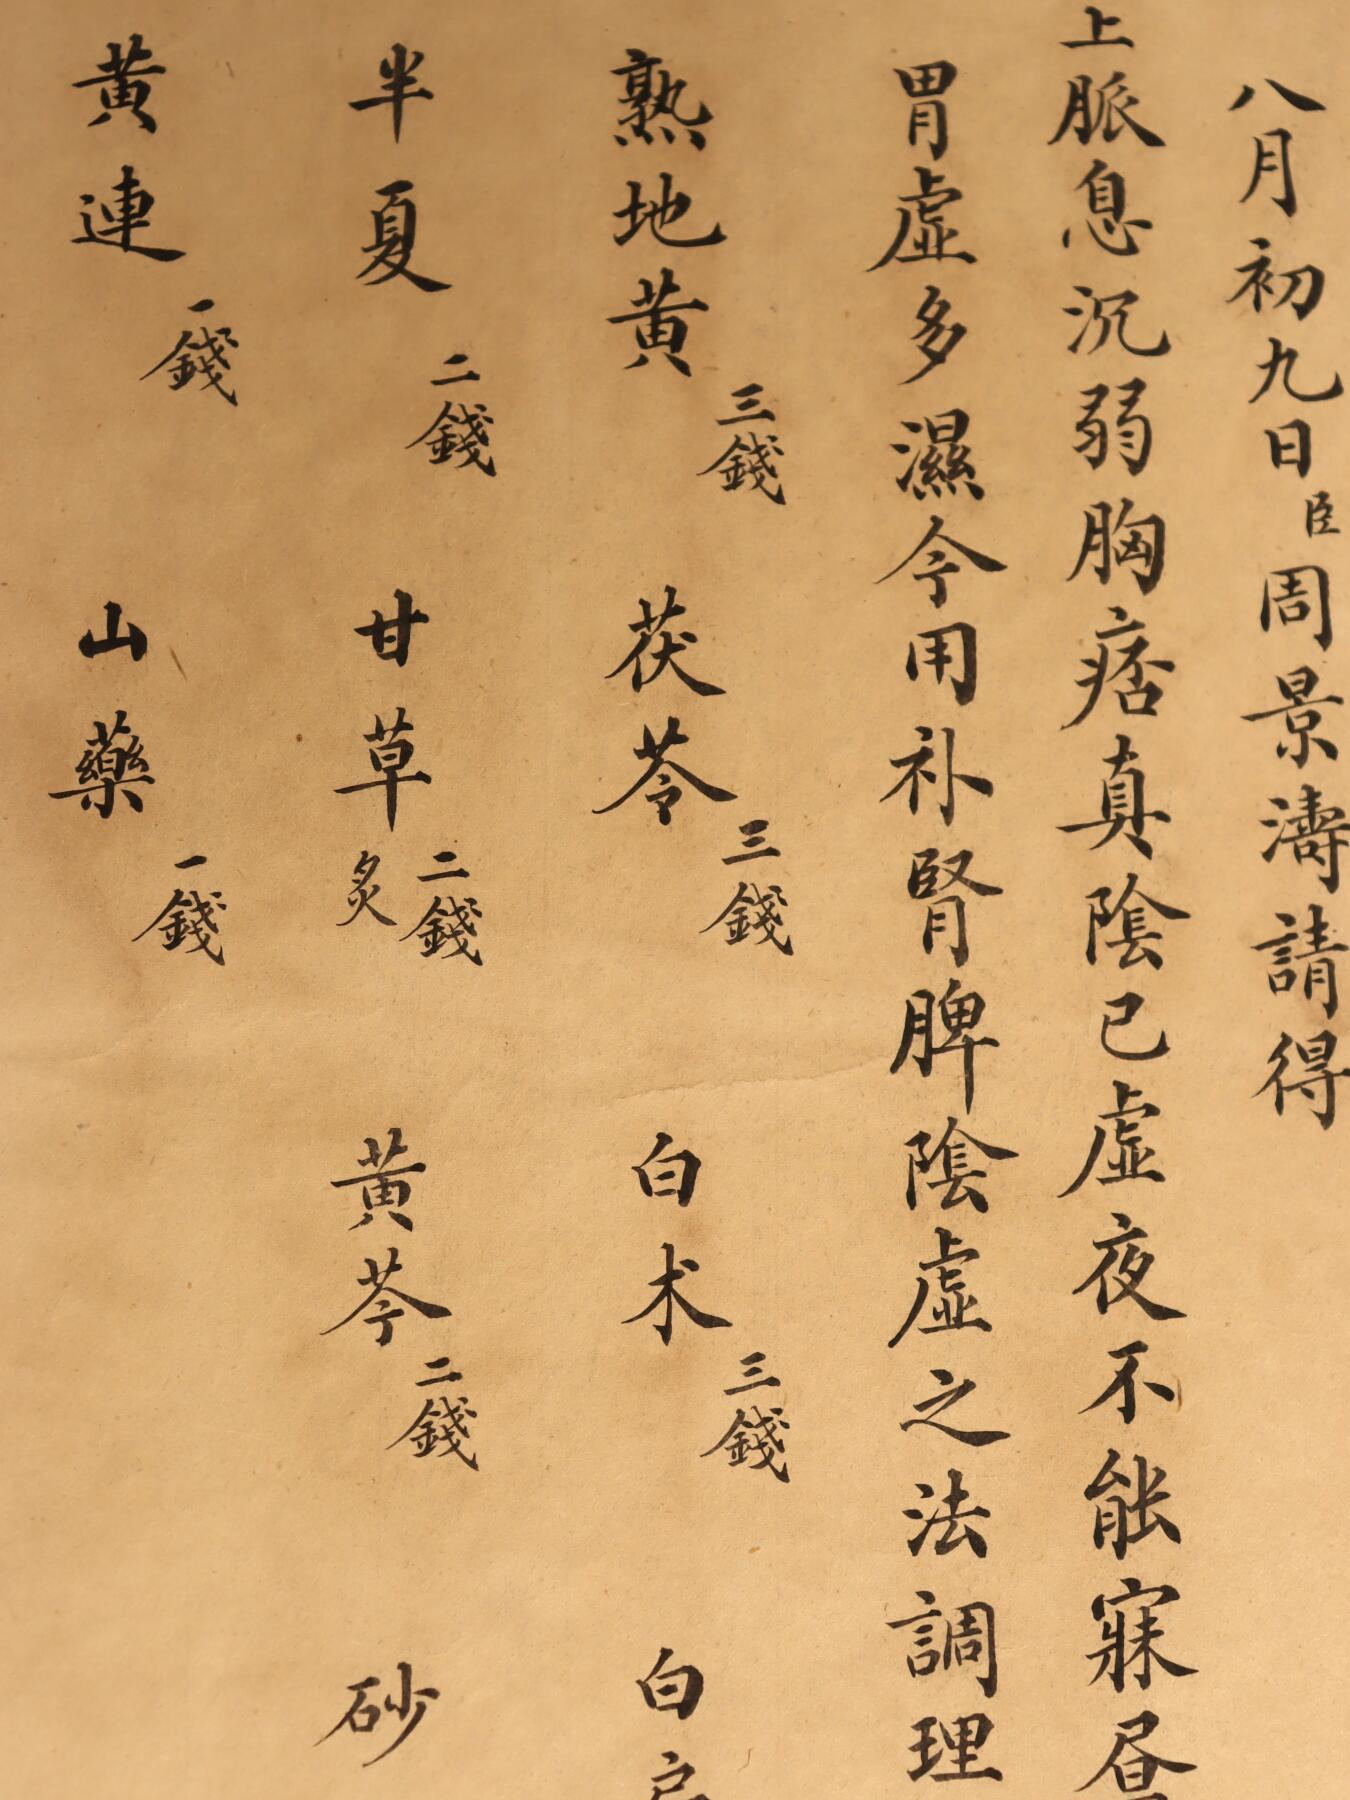 八月初九日臣周景濤請得
上脈息沉弱胸痞真陰已虛夜不能寐昼
胃虛多濕今用补腎脾陰虛之法調理
熟地黃三錢 茯苓三錢 白术三錢 白
半夏二錢 甘草二錢炙 黃芩二錢 砂
黃連一錢 山藥一錢